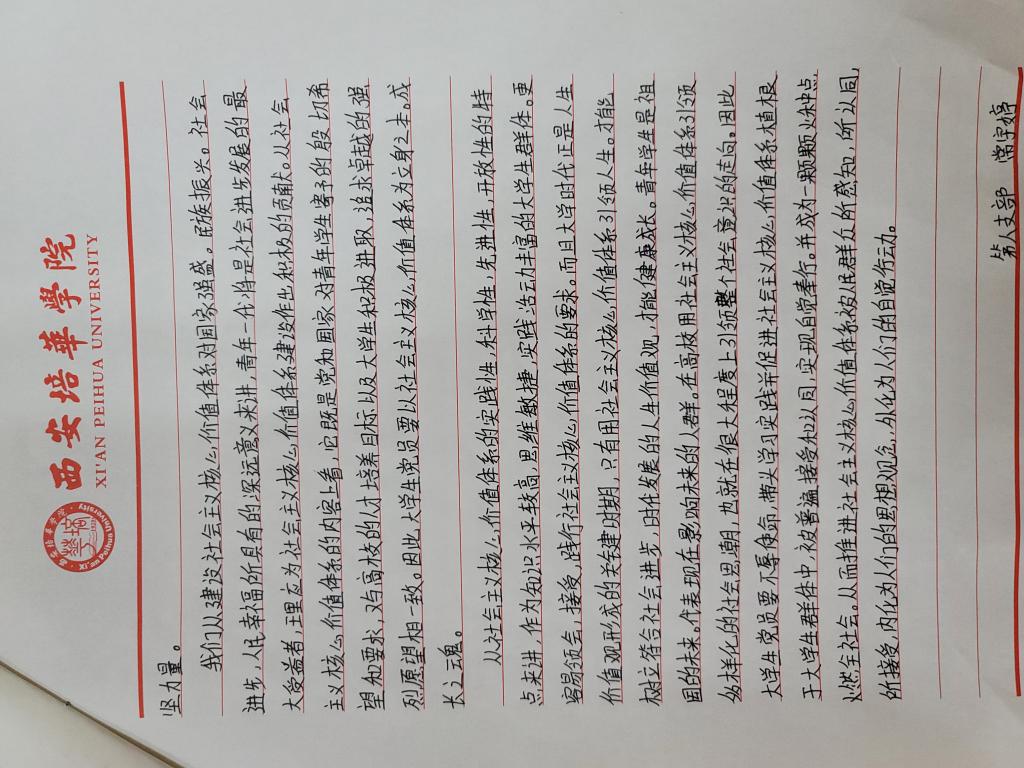 西安培華學院
XI'AN PEIHUA UNIVERSITY
西安培华学院
Xi'an Peihua University
坚力量。
我们从建设社会主义核心价值体系对国家强盛。民族振兴。社会
进步，人民幸福所具有的深远意义来讲，青年一代将是社会进步发展的最
大受益者，王理应为社会主义核心价值体系建设作出积极的贡献。从社会
主义核心价值体系的内容上看，它既是党和国家对青年学生寄予的殷切希
望和要求，对高校的人才培养目标以及大学生积极进取，追求卓越的强
烈愿望相一致。因此大学生党员要以社会主义核心价值体系为立身之本。成
长之魂。
从社会主义核心价值体系的实践性，科学性，先进性，开放性的特
点来讲，作为知识水平较高，思维敏捷，实践活动丰富的大学生群体。更
容易领会，接受，践行社会主义核心价值体系的要求。而且大学时代正是人生
价值观形成的关键时期，只有用社会主义核心价值体系引领人生。才能
树立符合社会进步，时代发展的人生价值观，才能健康成长。青年学生是祖
国的未来，代表现在影响未来的人群。在高校用社会主义核心价值体系引领
多样化的社会思潮，西就在很大程度上引领整个社会意识的走向。因此
大学生党员要不辱使命，带头学习实践并促进社会主义核心价值体系植根
于大学生群体中，被普遍接受和认同，实现自觉奉行。并成为一颗颗火种点
火燃全社会。从而推进社会主义核心价值体系被人民群众所感知，所认同，
所接受，内化为人们的思想观念，外化为人们的自觉行动。
第八支部 常宇婷